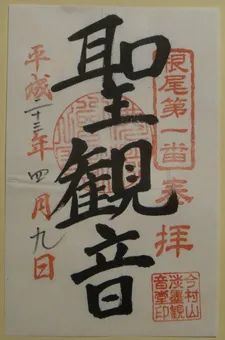 根尾第一番
奉拝
聖観音
平成二十三年四月九日
今村山
淡墨観
音堂印